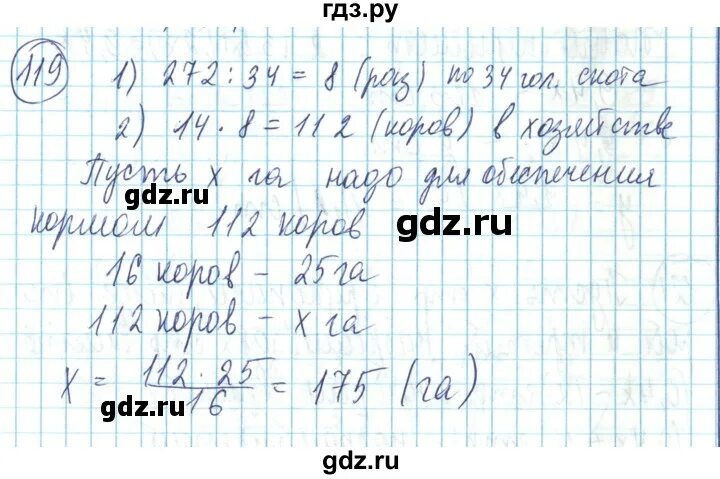 гдз.ру
119 1) 272 : 34 = 8 (раз) по 34 гол. скота
2) 14 · 8 = 112 (коров) в хозяйстве
Пусть х га надо для обеспечения
gdz.ru
кормом 112 коров gdz.ru
16 коров – 25 га
112 коров – х га
х = 112 · 25 / 16 = 175 (га)
gdz.ru
gdz.ru